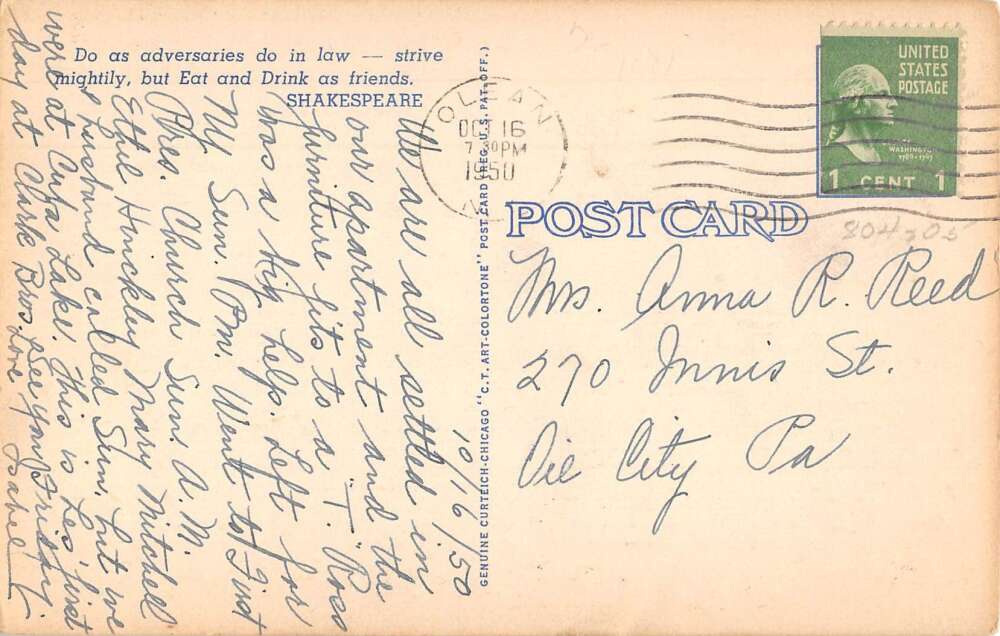 Do as adversaries do in law — strive
mightily, but Eat and Drink as friends.
SHAKESPEARE
10/16/50
We are all settled in
our apartment and the
furniture fits to a "T". Ross
was a big help. Left for
N.Y. Sun. P.m. Went to First
Pres. Church Sun. A.M.
Ethel Hinckley Mary Mitchell
& husband called Sun. but we
were at Cuba Lake. This is Les' first
day at Clark Bros. See you Friday.
Love Isabel
GENUINE CURTEICH-CHICAGO "C.T. ART-COLORTONE" POST CARD (REG. U.S. PAT. OFF.)
OLEAN
OCT 16
7 30 PM
1950
N.Y.
UNITED
STATES
POSTAGE
WASHINGTON
1789-1797
1 CENT 1
POST CARD
804305
Mrs. Anna R. Reed
270 Innis St.
Oil City Pa